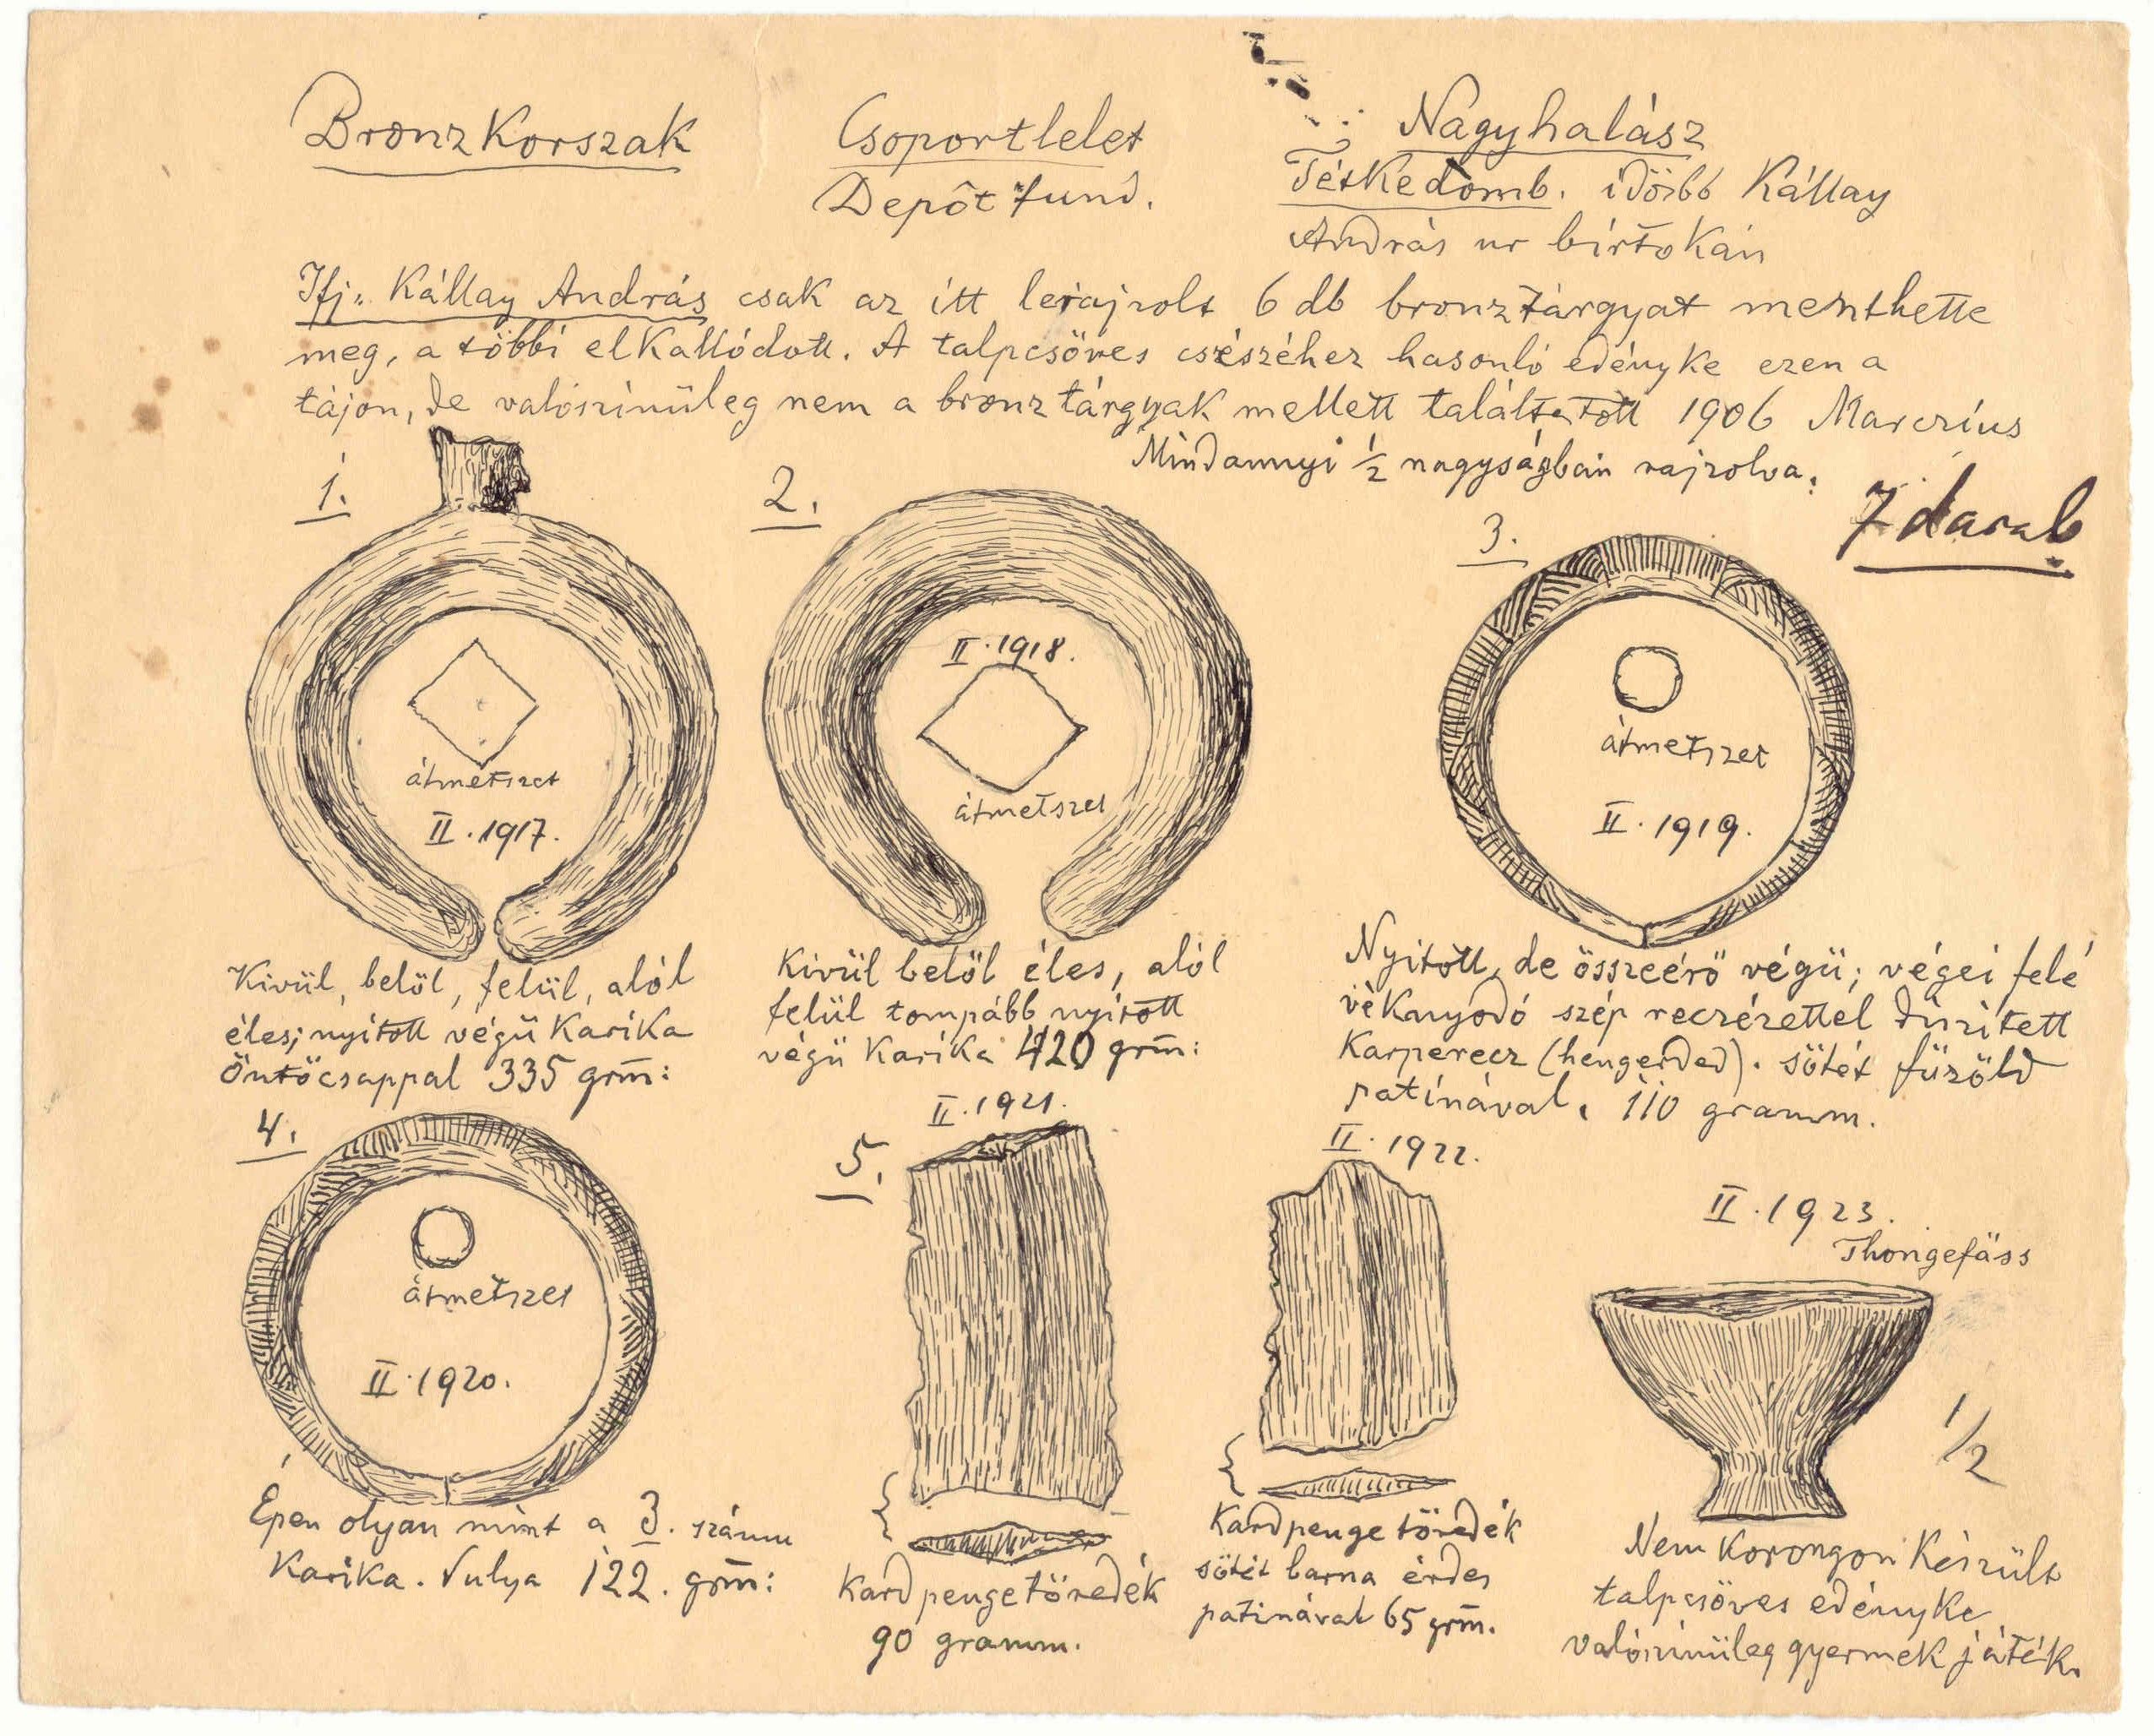 Bronz Korszak
Csoportlelet
Depôt fund.
Nagyhalász
Tétkedomb. idősbb Kállay
András ur birtokán
Ifj. Kállay András csak az itt lerajzolt 6 db bronztárgyat menthette
meg, a többi elkallódott. A talpcsöves csészéhez hasonló edényke ezen a
tájon, de valószinüleg nem a bronztárgyak mellett találtatott 1906 Marczius
Mindannyi ½ nagyságban rajzolva.
7 darab
1.
átmetszet
II. 1917.
Kivül, belöl, felül, alól
éles; nyitott végü Karika
Öntőcsappal 335 grm:
2.
II. 1918.
átmetszet
Kivül belől éles, alól
felül tompább nyitott
végü Karika 420 grm:
3.
átmetszet
II. 1919.
Nyitott, de összeérő végü; végei felé
vékonyodó szép reczézettel diszitett
Karperecz (hengerded). sötét füzöld
patinával. 110 gramm.
4.
átmetszet
II. 1920.
Épen olyan mint a 3. számu
Karika. Sulya 122. grm:
5.
II. 1921.
Kardpengetöredék
90 gramm.
II. 1922.
Kardpenge töredék
sötét barna érdes
patinával 65 grm.
II. 1923.
Thongefäss
1/2
Nem Korongon Készült
talpcsöves edényke
valószinüleg gyermek játék.